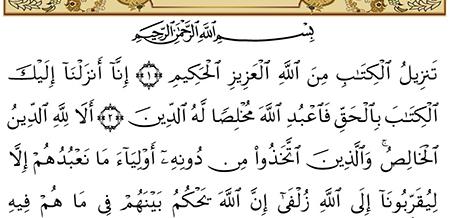 بِسْمِ ٱللَّهِ ٱلرَّحْمَٰنِ ٱلرَّحِيمِ
تَنزِيلُ ٱلْكِتَٰبِ مِنَ ٱللَّهِ ٱلْعَزِيزِ ٱلْحَكِيمِ ﴿١﴾ إِنَّآ أَنزَلْنَآ إِلَيْكَ
ٱلْكِتَٰبَ بِٱلْحَقِّ فَٱعْبُدِ ٱللَّهَ مُخْلِصًا لَّهُ ٱلدِّينَ ﴿٢﴾ أَلَا لِلَّهِ ٱلدِّينُ
ٱلْخَالِصُ ۚ وَٱلَّذِينَ ٱتَّخَذُوا۟ مِن دُونِهِۦٓ أَوْلِيَآءَ مَا نَعْبُدُهُمْ إِلَّا
لِيُقَرِّبُونَآ إِلَى ٱللَّهِ زُلْفَىٰٓ إِنَّ ٱللَّهَ يَحْكُمُ بَيْنَهُمْ فِى مَا هُمْ فِيهِ